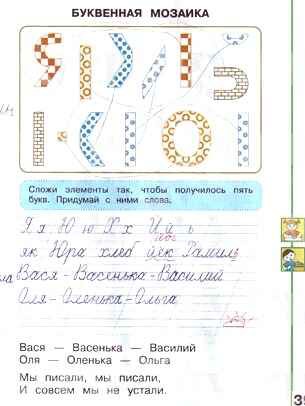 БУКВЕННАЯ МОЗАИКА
Сложи элементы так, чтобы получилось пять
букв. Придумай с ними слова.
Я я Ю ю Х х И й ь
як Юра хлеб йёк
Вася - Васенька - Василий
Оля - Оленька - Ольга
Вася — Васенька — Василий
Оля — Оленька — Ольга
Мы писали, мы писали,
И совсем мы не устали.